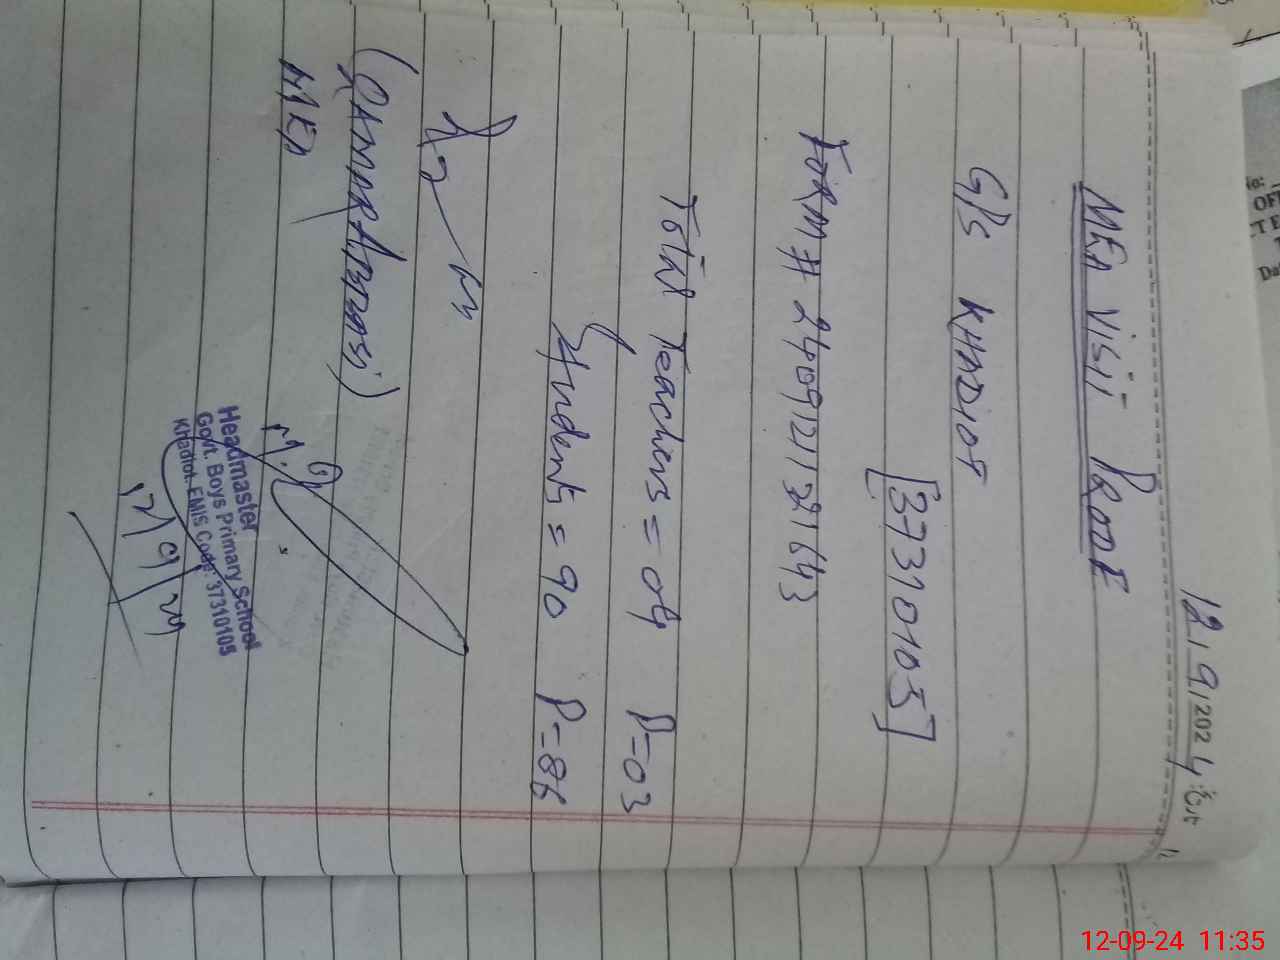 12/9/2024 تاریخ
MEA Visit Proof
G/S KHADIOT
[37310105]
FORM # 2409121132643
Total Teachers = 04 P=03
Students = 90 P=86
(QAMAR ABBASI)
MEA
Headmaster
Govt. Boys Primary School
Khadiot. EMIS Code: 37310105
12/9/24
No:
OFF
Da
12-09-24 11:35